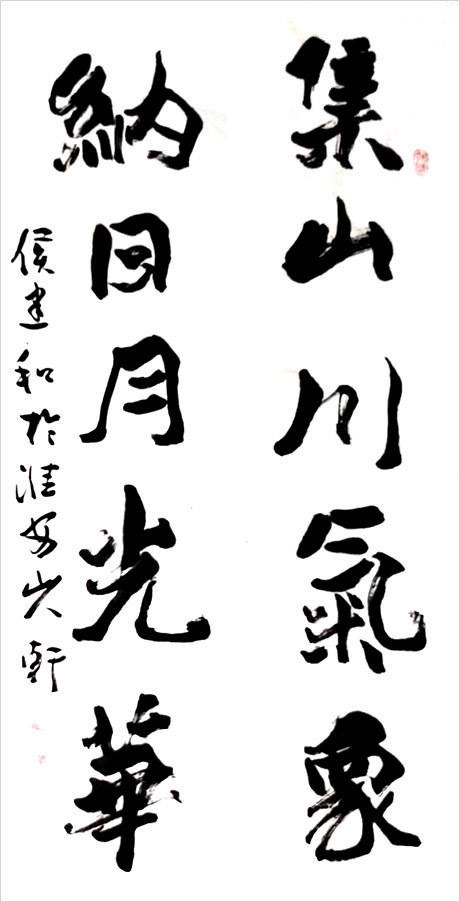 集山川氣象
納日月光華
侯建和於淮安軒